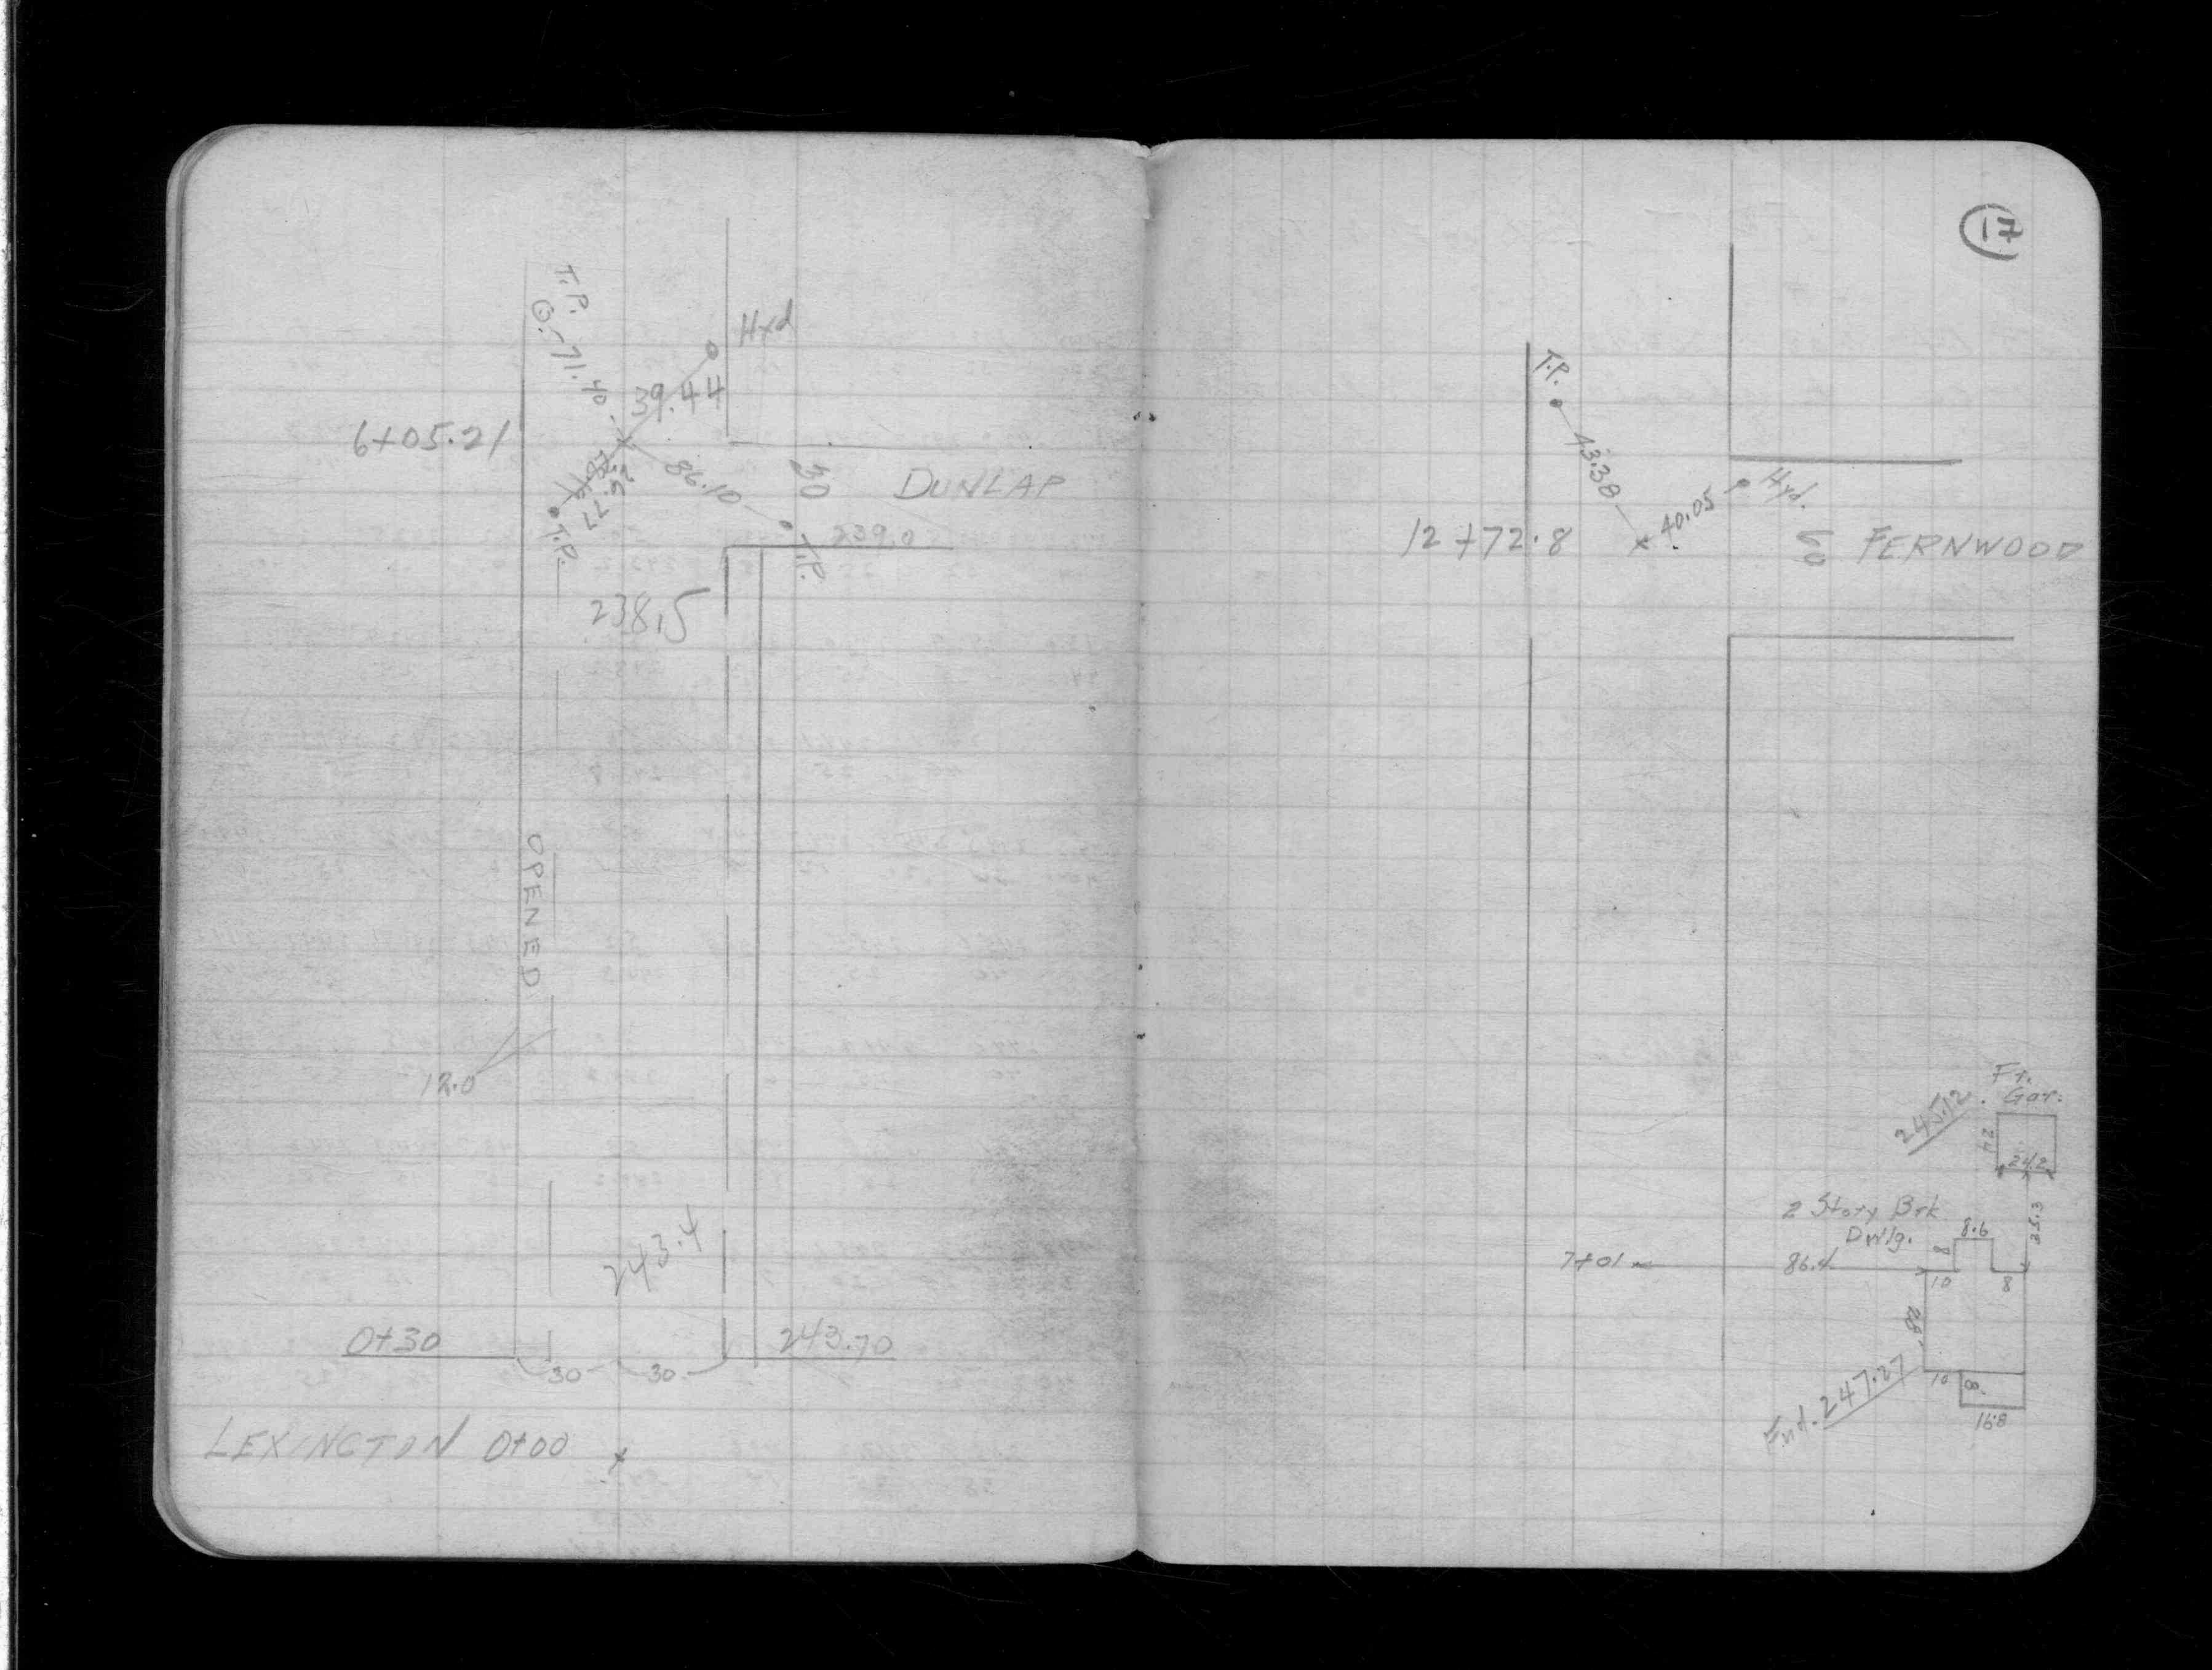 T.P.
71.40
Hyd
39.44
6+05.21
26.77
86.10
30
DUNLAP
T.P.
T.P.
239.0
238.5
OPENED
12.0
243.4
0+30
30
30
243.70
LEXINGTON 0+00
17
T.P.
43.38
40.05
Hyd.
12+72.8
FERNWOOD
Fr.
Gar.
245.12
24
24.2
2 Story Brk
Dwlg.
8.6
8
35.3
7+01
86.4
10
8
28
10
8
16.8
Fnd. 247.27